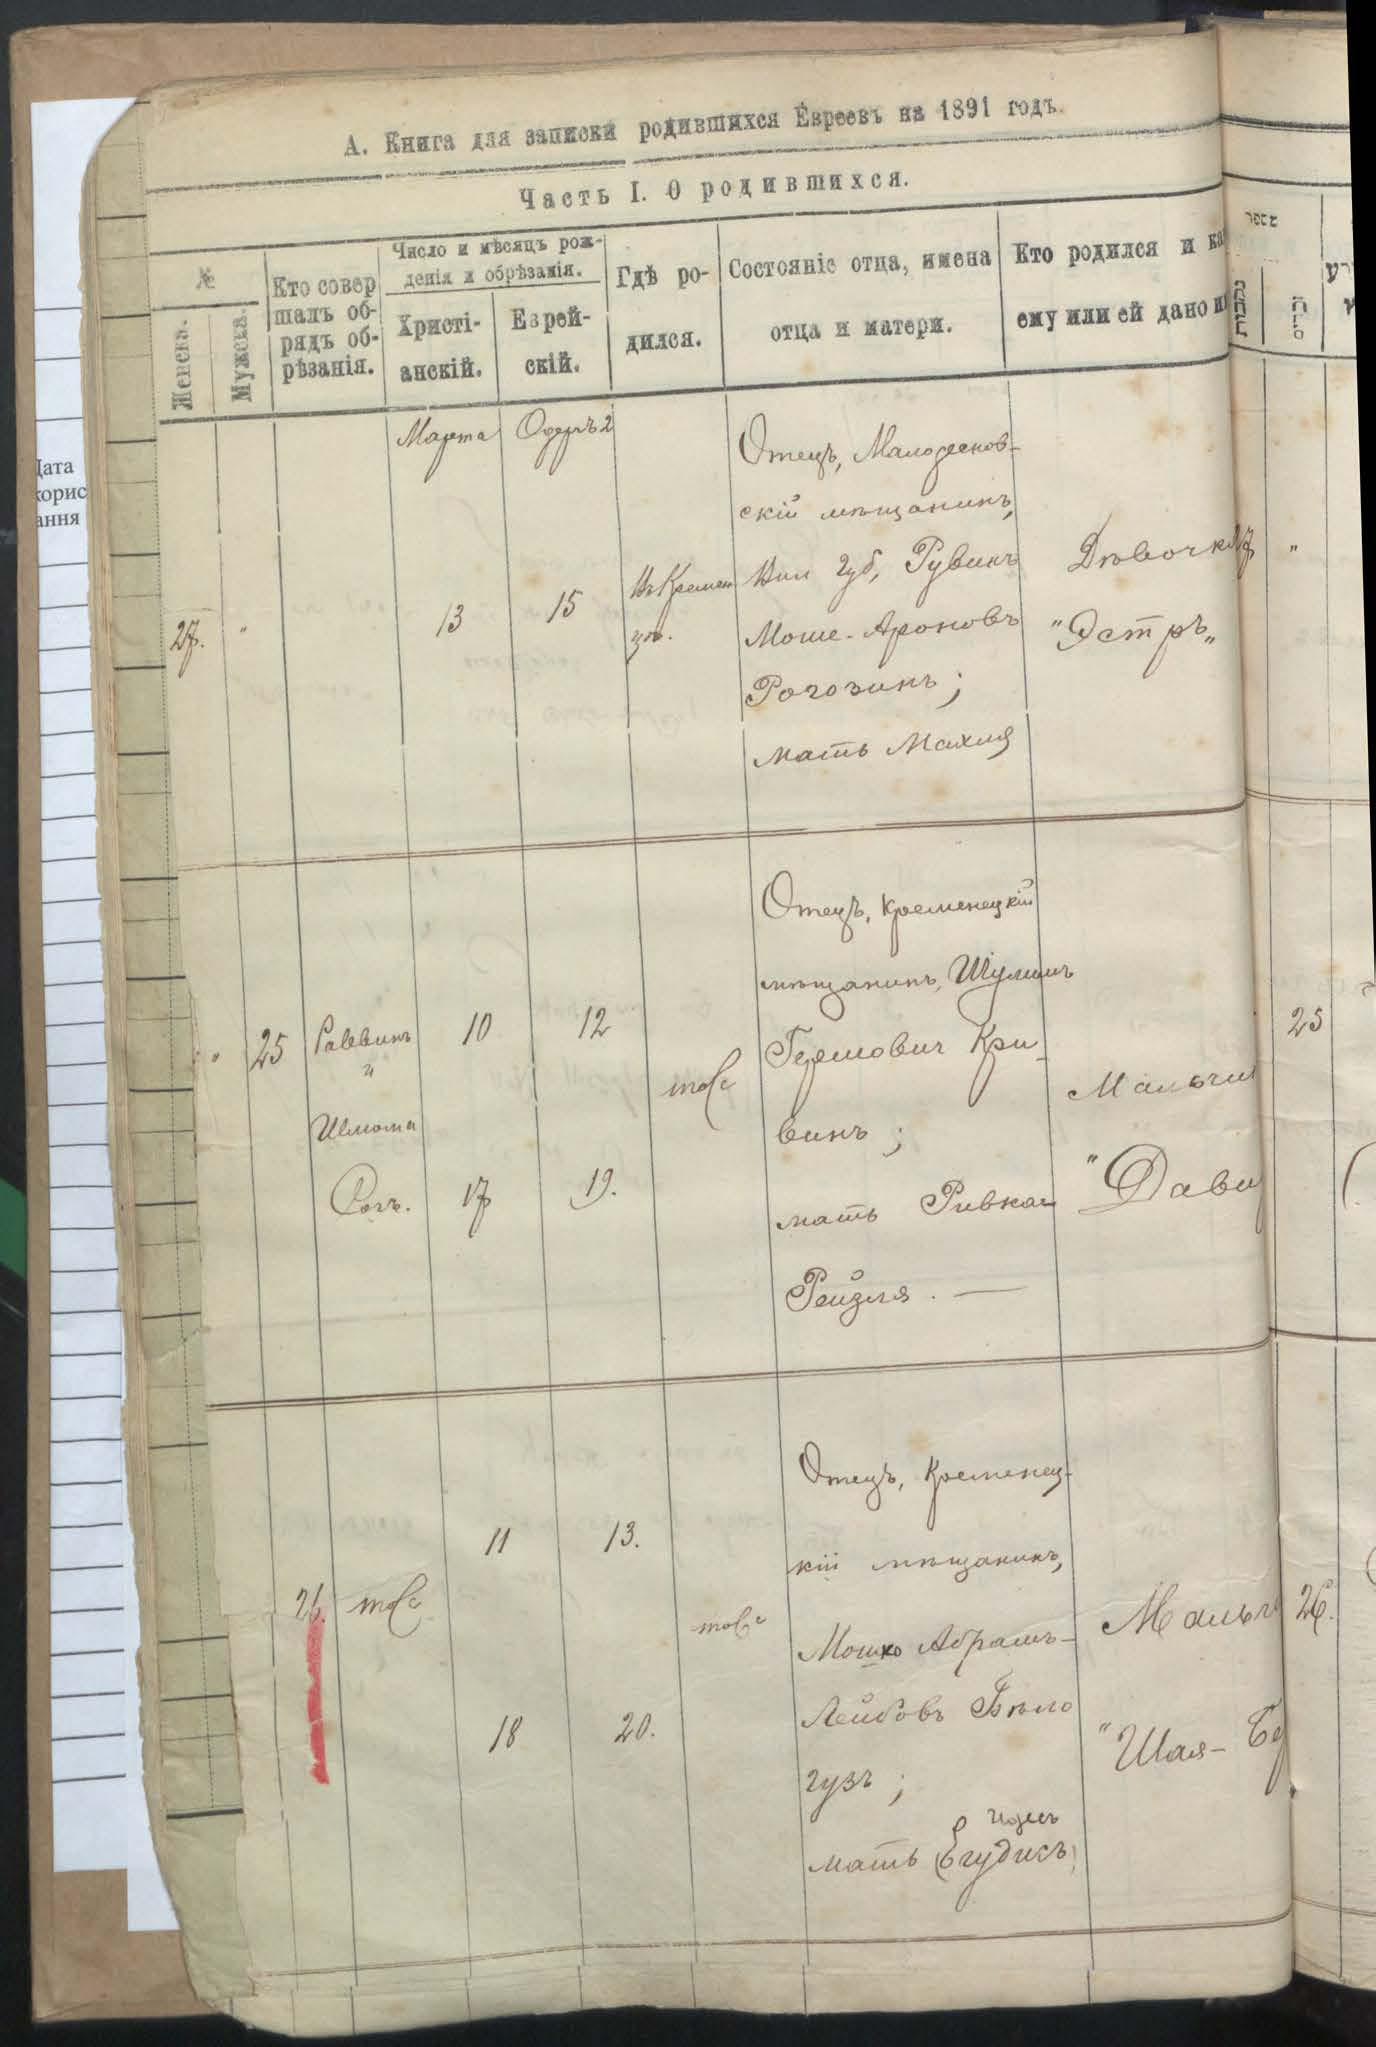 А. Книга для записки родившихся Евреевъ на 1891 годъ.
Часть I. О родившихся.
№
Женска.
Мужска.
Кто совер
шалъ об-
рядъ об-
рѣзанія.
Число и мѣсяцъ рож-
денія и обрѣзанія.
Христі-
анскій.
Еврей-
скій.
Гдѣ ро-
дился.
Состояніе отца, имена
отца и матери.
Кто родился и ка
ему или ей дано и
נקבות
זכרים
Дата
корис
ання
Марта
Одеръ 2
27.
"
13
15
Въ Кремен
цѣ.
Отецъ,
скій мѣщанинъ,
Вил губ, Рувинъ
Моше-Ароновъ
Рогозинъ;
мать Махля
Дѣвочка
"Эстръ"
27
"
"
25
Раввинъ
и
Шлома
Рогъ.
10
12
17
19.
тоже
Отецъ, Кременецкій
мѣщанинъ, Шулимъ
Гершовичъ Кри-
винъ;
мать Ривка
Рейзля. —
Мальчи
"Дави
25
26.
тоже
11
13.
18
20.
тоже
Отецъ, Кременец-
кій мѣщанинъ,
Мошко Абрамъ-
Лейбовъ Бѣло
гузъ;
мать
Мальч
"Шая-Бе
26.